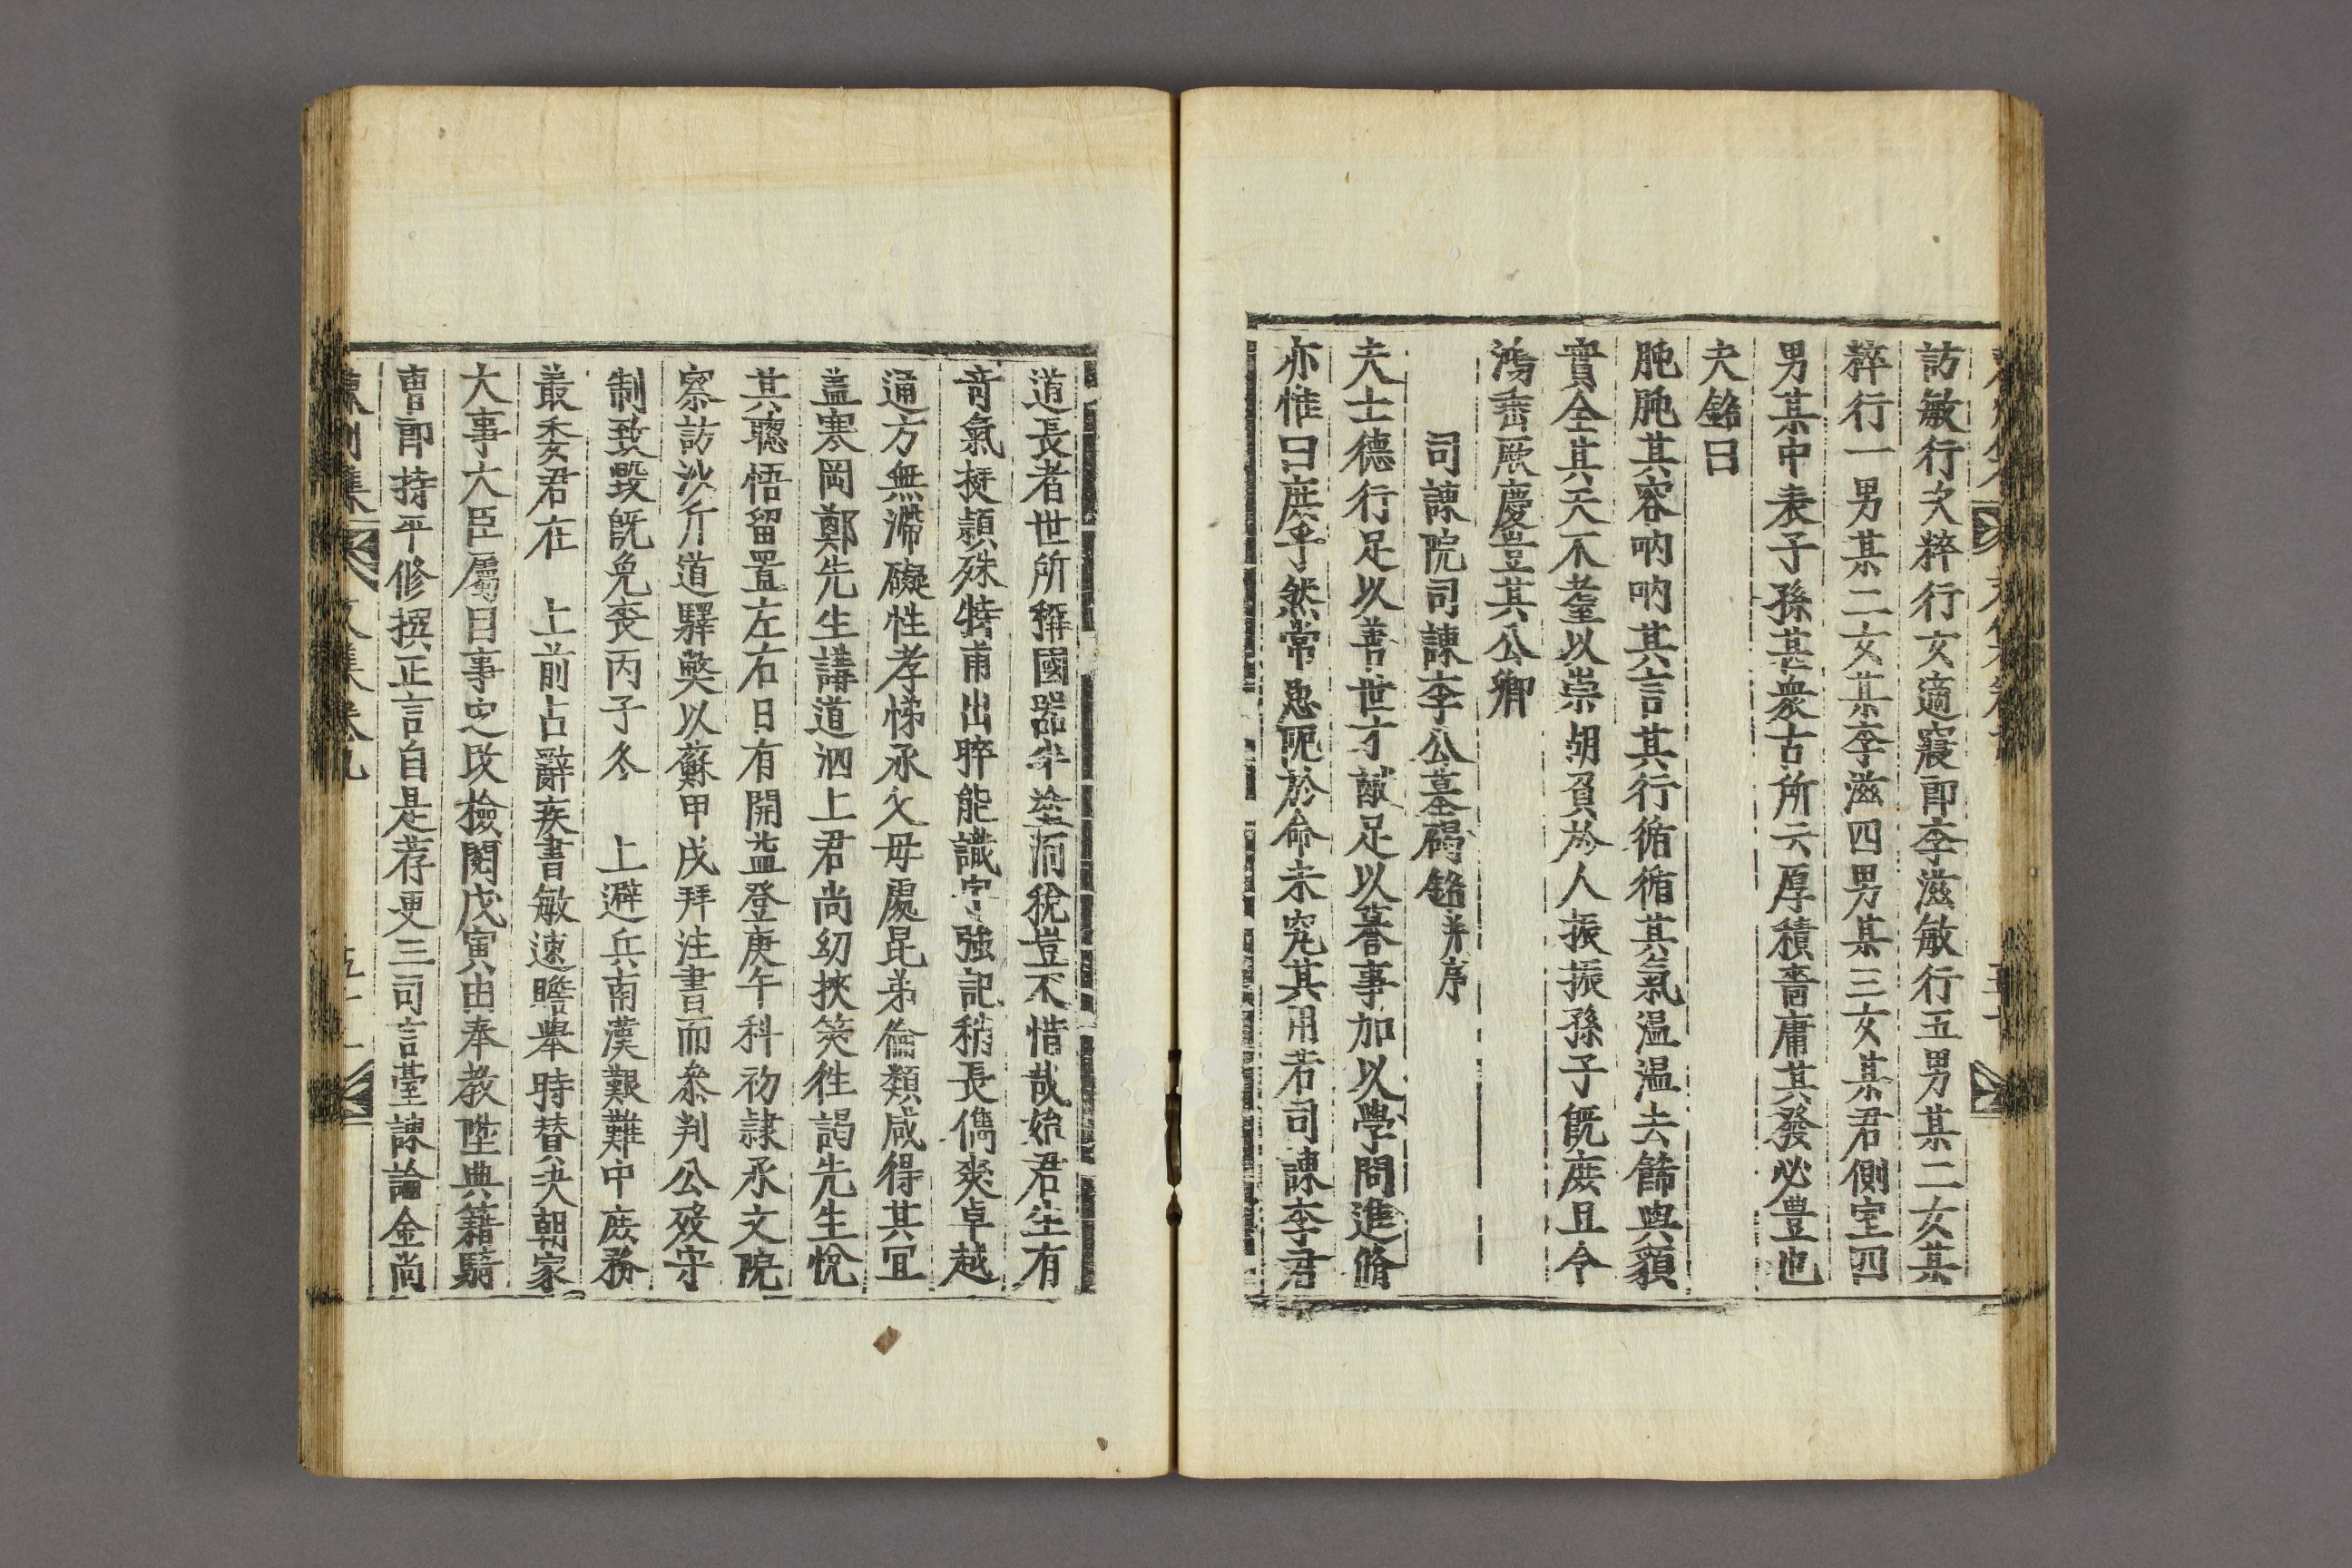 訪敏行次粹行女適寢郎李滋敏行五男某二女某
粹行一男某二女某李滋四男某三女某君側室四
男某中表子孫甚衆古所云厚積嗇庸其發必豊也
夫銘曰
肫肫其容吶吶其言其行循循其氣温温去餙與㒵
實全其天不耋以崇胡負於人振振孫子旣庶且令
鴻垂厥慶豈其公卿
司諫院司諫李公墓碣銘并序
夫士德行足以善世才猷足以蕃事加以學問進脩
亦惟曰庶乎然常患阨於命未究其用若司諫李君
道長者世所稱國器半塗泂稅豈不惜哉始君生有
奇氣挺穎殊特甫出晬能識字強記稍長儁爽卓越
通方無滯礙性孝悌承父母處昆弟倫類咸得其冝
盖寒岡鄭先生講道泗上君尚幼挾筴徃謁先生悅
其聰悟留置左右日有開益登庚午科初隸承文院
察訪沙斤道驛獘以蘇甲戌拜注書而叅判公歿守
制致毀旣免丧丙子冬 上避兵南漢艱難中庶務
叢委君在 上前占辭疾書敏速贍舉時替決朝家
大事大臣屬目事定改檢閱戊寅由奉教陞典籍騎
曹郎持平修撰正言自是荐更三司言臺諫論金尚
東州集 文集卷九 五十一